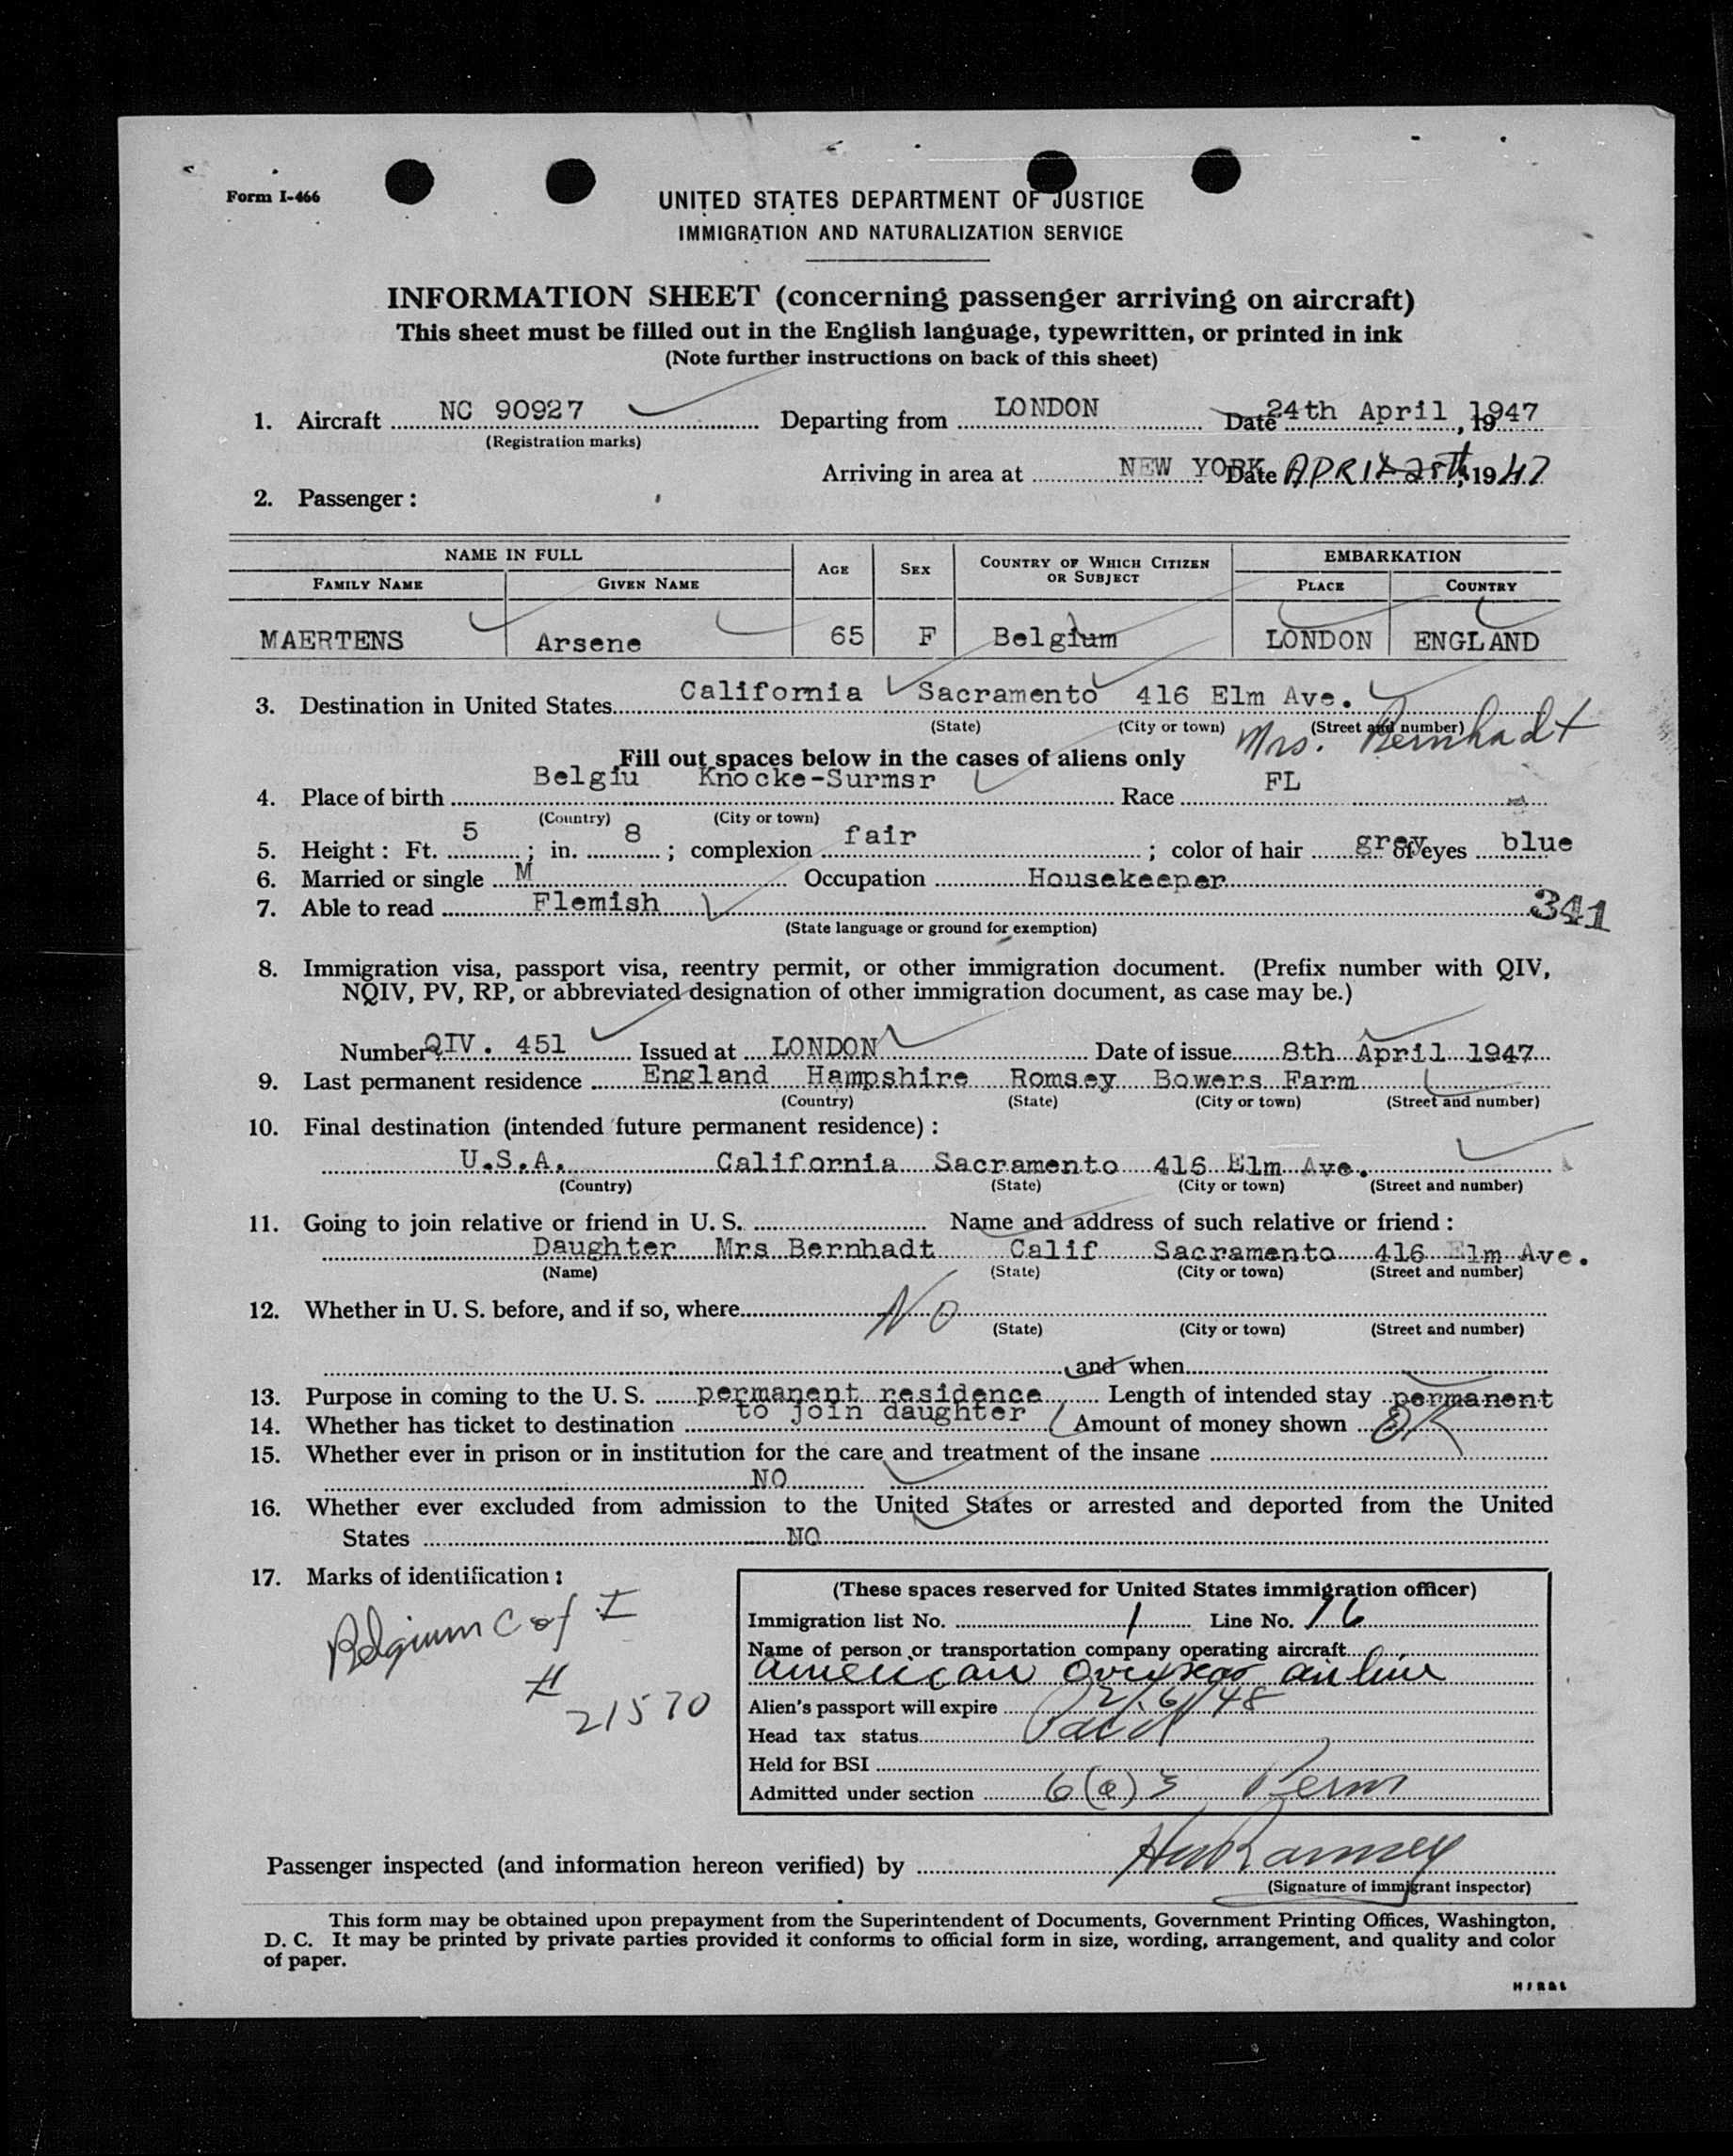 Form I-466
UNITED STATES DEPARTMENT OF JUSTICE
IMMIGRATION AND NATURALIZATION SERVICE
INFORMATION SHEET (concerning passenger arriving on aircraft)
This sheet must be filled out in the English language, typewritten, or printed in ink
(Note further instructions on back of this sheet)
1. Aircraft NC 90927 Departing from LONDON Date 24th April, 1947
(Registration marks)
Arriving in area at NEW YORK Date APRIL 25th, 1947
2. Passenger:
NAME IN FULL AGE SEX COUNTRY OF WHICH CITIZEN OR SUBJECT EMBARKATION
FAMILY NAME GIVEN NAME PLACE COUNTRY
MAERTENS Arsene 65 F Belgium LONDON ENGLAND
3. Destination in United States California Sacramento 416 Elm Ave.
(State) (City or town) (Street and number)
Mrs. Bernhadt
Fill out spaces below in the cases of aliens only
4. Place of birth Belgiu Knocke-Surmsr Race FL
(Country) (City or town)
5. Height: Ft. 5; in. 8; complexion fair; color of hair grey of eyes blue
6. Married or single M Occupation Housekeeper
7. Able to read Flemish
341
(State language or ground for exemption)
8. Immigration visa, passport visa, reentry permit, or other immigration document. (Prefix number with QIV,
NQIV, PV, RP, or abbreviated designation of other immigration document, as case may be.)
Number QIV. 451 Issued at LONDON Date of issue 8th April 1947
9. Last permanent residence England Hampshire Romsey Bowers Farm
(Country) (State) (City or town) (Street and number)
10. Final destination (intended future permanent residence):
U.S.A. California Sacramento 416 Elm Ave.
(Country) (State) (City or town) (Street and number)
11. Going to join relative or friend in U. S. Name and address of such relative or friend:
Daughter Mrs Bernhadt Calif Sacramento 416 Elm Ave.
(Name) (State) (City or town) (Street and number)
12. Whether in U. S. before, and if so, where No
(State) (City or town) (Street and number)
and when
13. Purpose in coming to the U. S. permanent residence Length of intended stay permanent
to join daughter
14. Whether has ticket to destination Amount of money shown OK
15. Whether ever in prison or in institution for the care and treatment of the insane
NO
16. Whether ever excluded from admission to the United States or arrested and deported from the United
States NO
17. Marks of identification:
Belgium C of I
# 21570
(These spaces reserved for United States immigration officer)
Immigration list No. 1 Line No. 16
Name of person or transportation company operating aircraft
American Overseas airline
Alien's passport will expire 2/6/48
Head tax status Paid
Held for BSI
Admitted under section 6(a)3 Perm
Passenger inspected (and information hereon verified) by Ramsey
(Signature of immigrant inspector)
This form may be obtained upon prepayment from the Superintendent of Documents, Government Printing Offices, Washington,
D. C. It may be printed by private parties provided it conforms to official form in size, wording, arrangement, and quality and color
of paper.